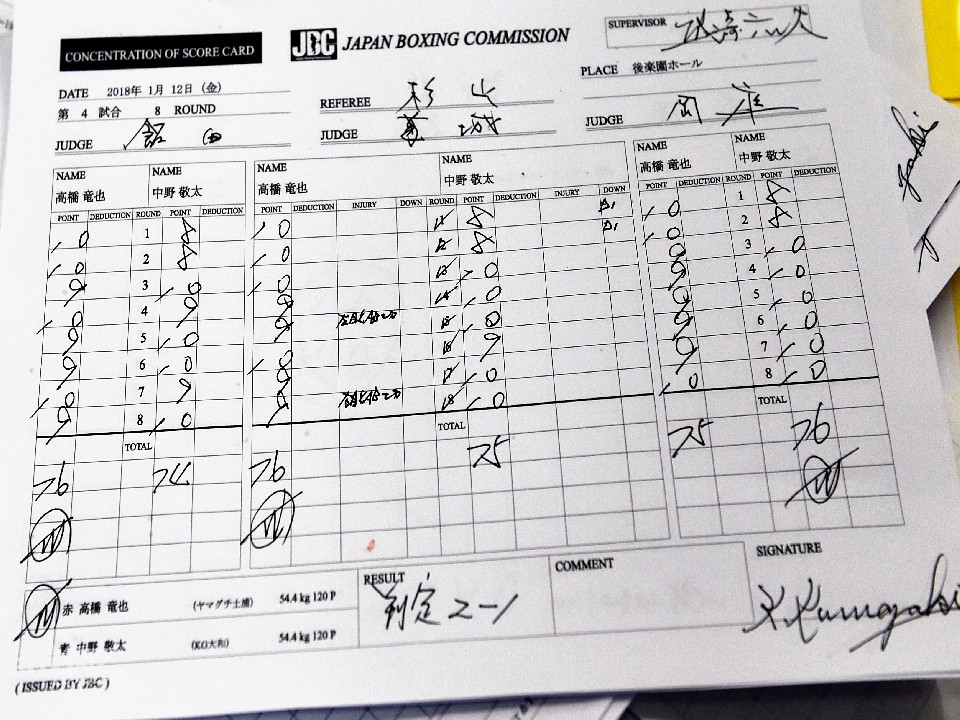 CONCENTRATION OF SCORE CARD
JBC JAPAN BOXING COMMISSION
SUPERVISOR
DATE 2018年 1月 12日 (金)
PLACE 後楽園ホール
第 4 試合 8 ROUND
REFEREE 杉山
JUDGE 飯田
JUDGE
JUDGE 岡庭
NAME 高橋 竜也 NAME 中野 敬太
NAME 高橋 竜也 NAME 中野 敬太
NAME 高橋 竜也 NAME 中野 敬太
POINT DEDUCTION ROUND POINT DEDUCTION
POINT DEDUCTION INJURY DOWN ROUND POINT DEDUCTION INJURY DOWN
POINT DEDUCTION ROUND POINT DEDUCTION
10 1 8 10 1 8 10 1 8
10 2 8 10 2 8 10 2 8
9 3 10 10 3 10 9 3 10
10 4 9 9 4 10 9 4 10
9 5 10 9 5 10 9 5 10
9 6 10 10 6 9 9 6 10
10 7 9 9 7 10 9 7 10
9 8 10 9 8 10 10 8 10
TOTAL TOTAL TOTAL
76 74 76 75 75 76
W W W
W 赤 高橋 竜也 (ヤマグチ土浦) 54.4 kg 120 P
青 中野 敬太 (KG大和) 54.4 kg 120 P
RESULT
判定 2-1
COMMENT
SIGNATURE
K Kumagaki
( ISSUED BY JBC )